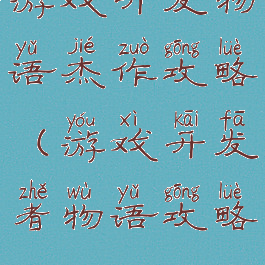 游戏开发物
yǔ jié zuò gōng lüè
语杰作攻略
yóu xì kāi fā
（游戏开发
zhě wù yǔ gōng lüè
者物语攻略